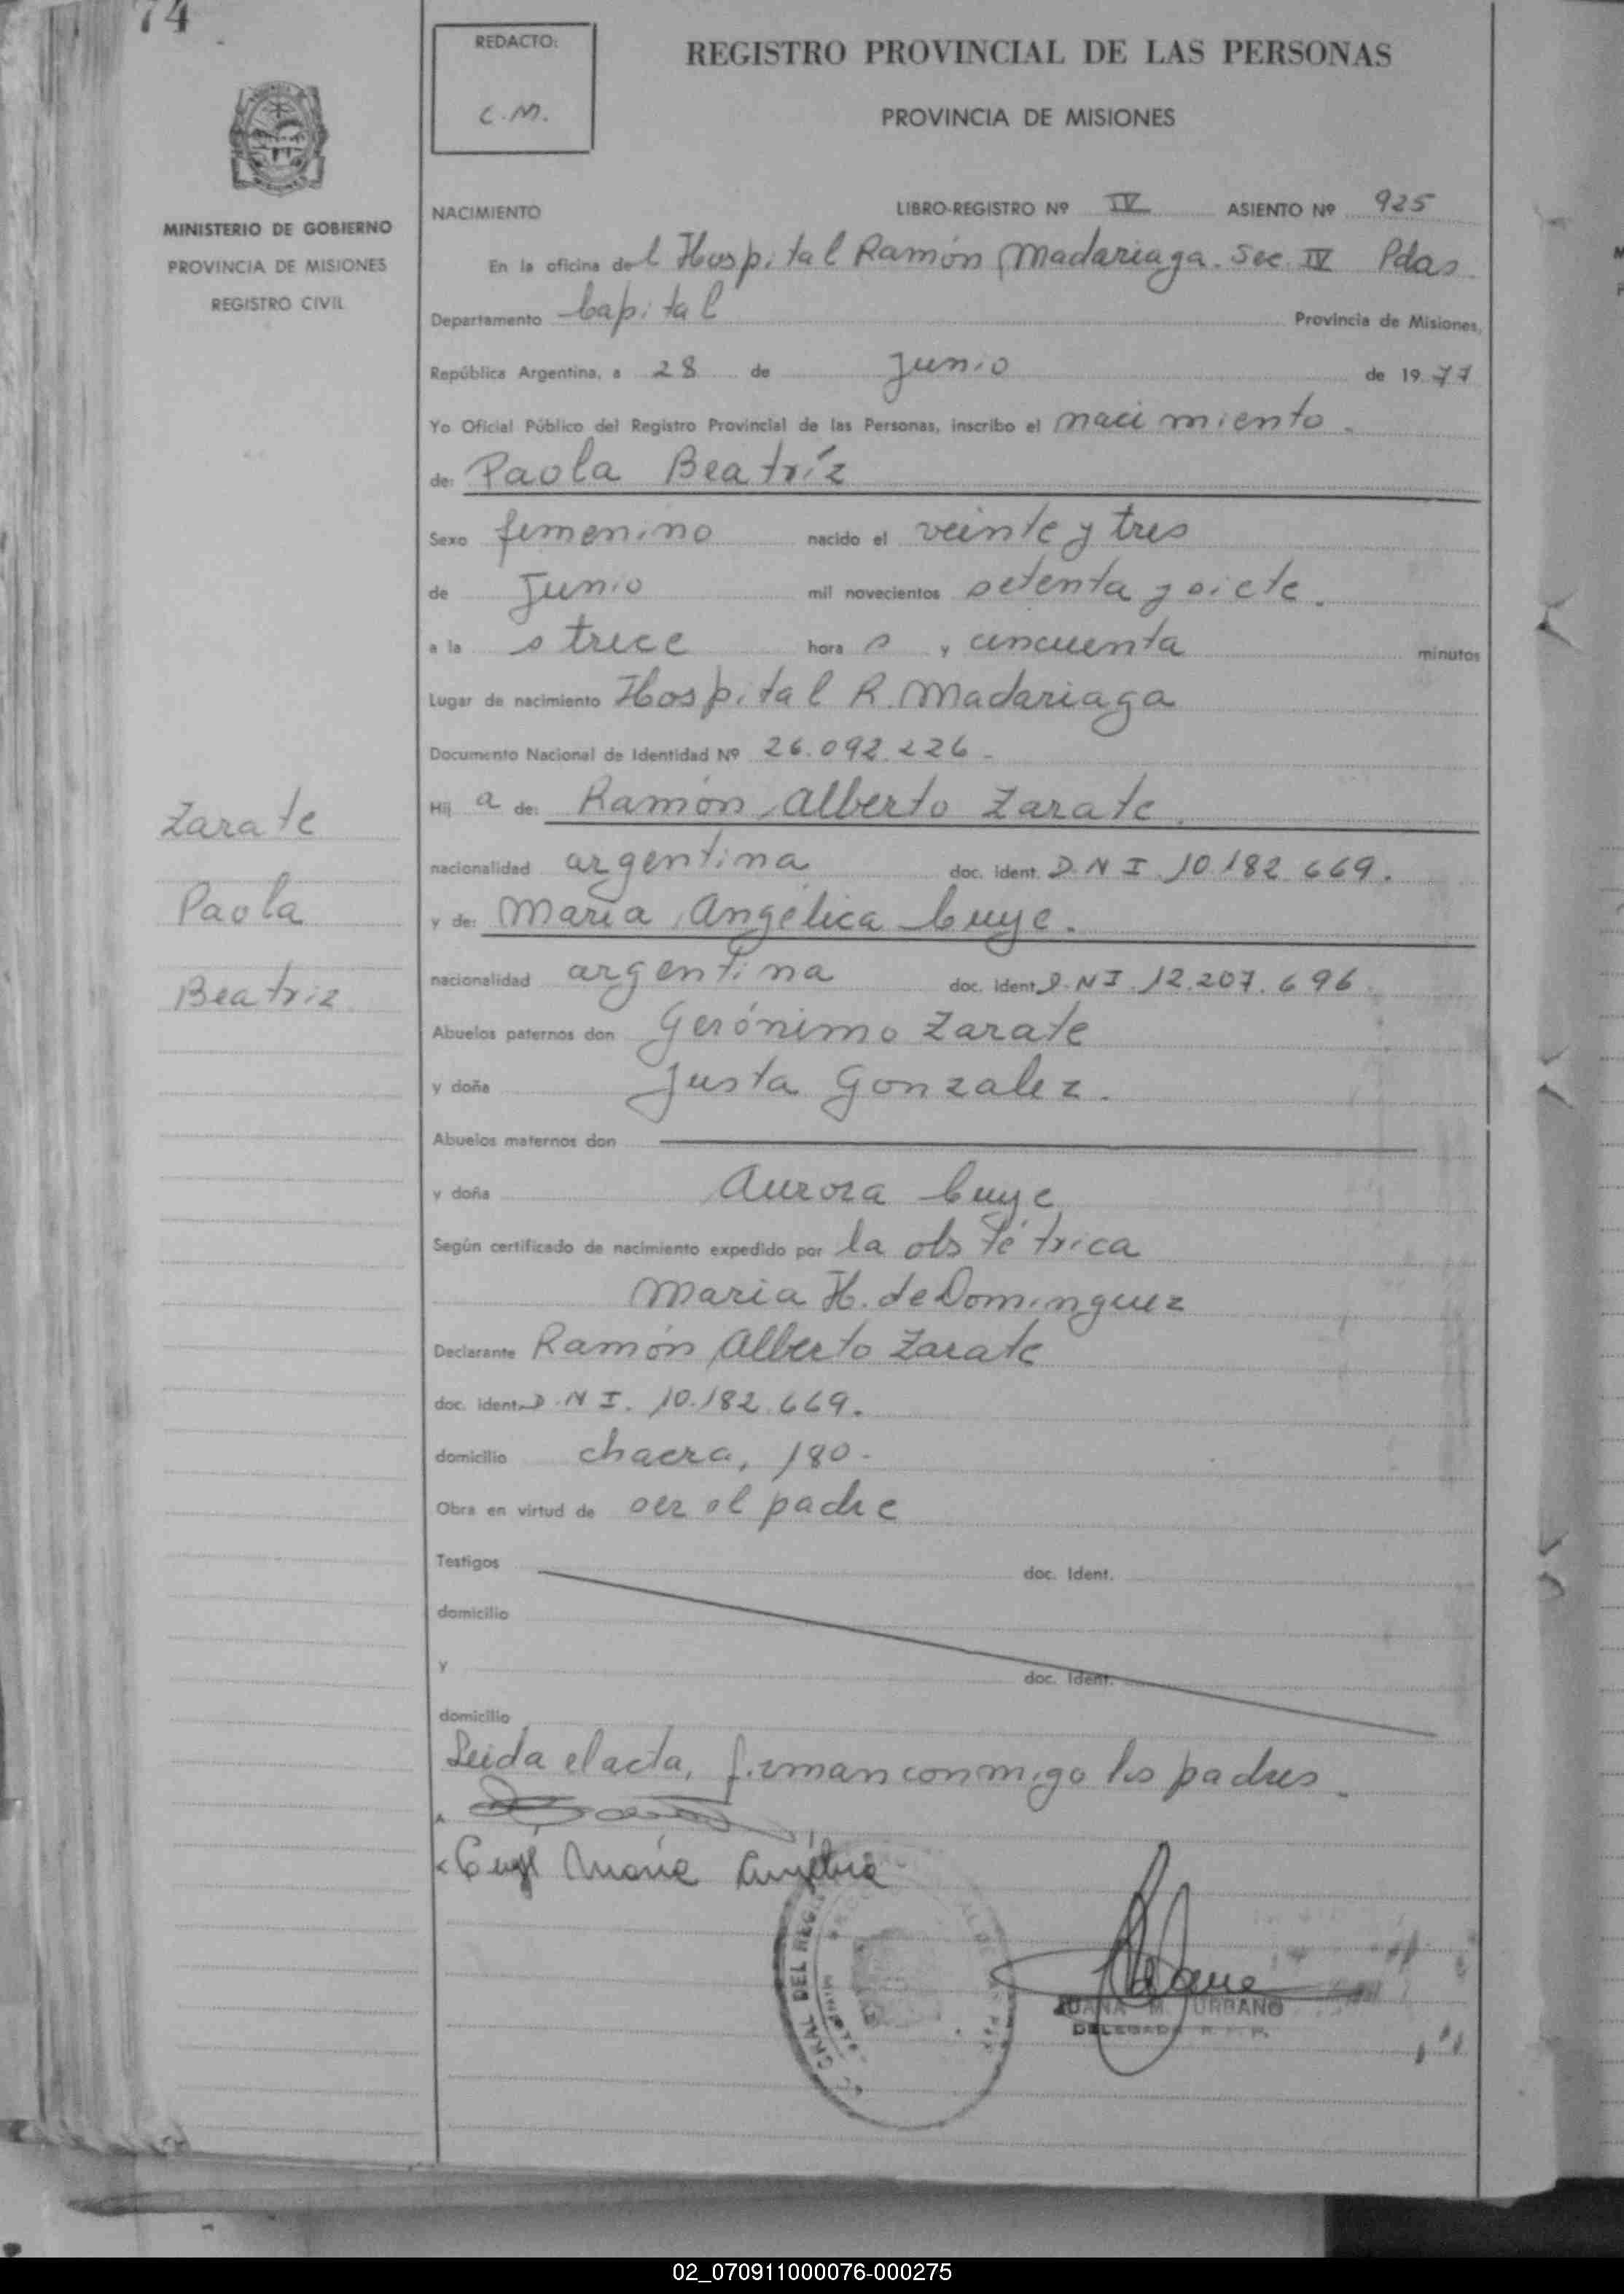 74
REDACTO:
C.M.
REGISTRO PROVINCIAL DE LAS PERSONAS
PROVINCIA DE MISIONES
MINISTERIO DE GOBIERNO
PROVINCIA DE MISIONES
REGISTRO CIVIL
NACIMIENTO LIBRO-REGISTRO Nº IV ASIENTO Nº 925
En la oficina del Hospital Ramón Madariaga. Sec IV Pdas
Departamento Capital Provincia de Misiones,
República Argentina, a 28 de Junio de 1977
Yo Oficial Público del Registro Provincial de las Personas, inscribo el nacimiento.
de: Paola Beatríz
Sexo femenino nacido el veinte y tres
de Junio mil novecientos setenta y siete.
a la s trece hora s y cincuenta minutos
Lugar de nacimiento Hospital R. Madariaga
Documento Nacional de Identidad Nº 26.092.226-
Hij a de: Ramón Alberto Zarate
nacionalidad argentina doc. ident. D.N.I. 10.182.669.
y de: María Angélica Cuye.
nacionalidad argentina doc. ident. D.N.I. 12.207.696
Abuelos paternos don Gerónimo Zarate
y doña Justa Gonzalez.
Abuelos maternos don
y doña Aurora Cuye
Según certificado de nacimiento expedido por la obstétrica
Maria H. de Dominguez
Declarante Ramón Alberto Zarate
doc. ident. D.N.I. 10.182.669.
domicilio chacra, 180.
Obra en virtud de ser el padre
Testigos doc. Ident.
domicilio
y doc. Ident.
domicilio
Leida el acta, firman conmigo los padres.
Zarate
Paola
Beatriz
Cuye María Angélica
DEL REG
JUANA M. URBANO
DELEGADA R. P. P.
02_070911000076-000275